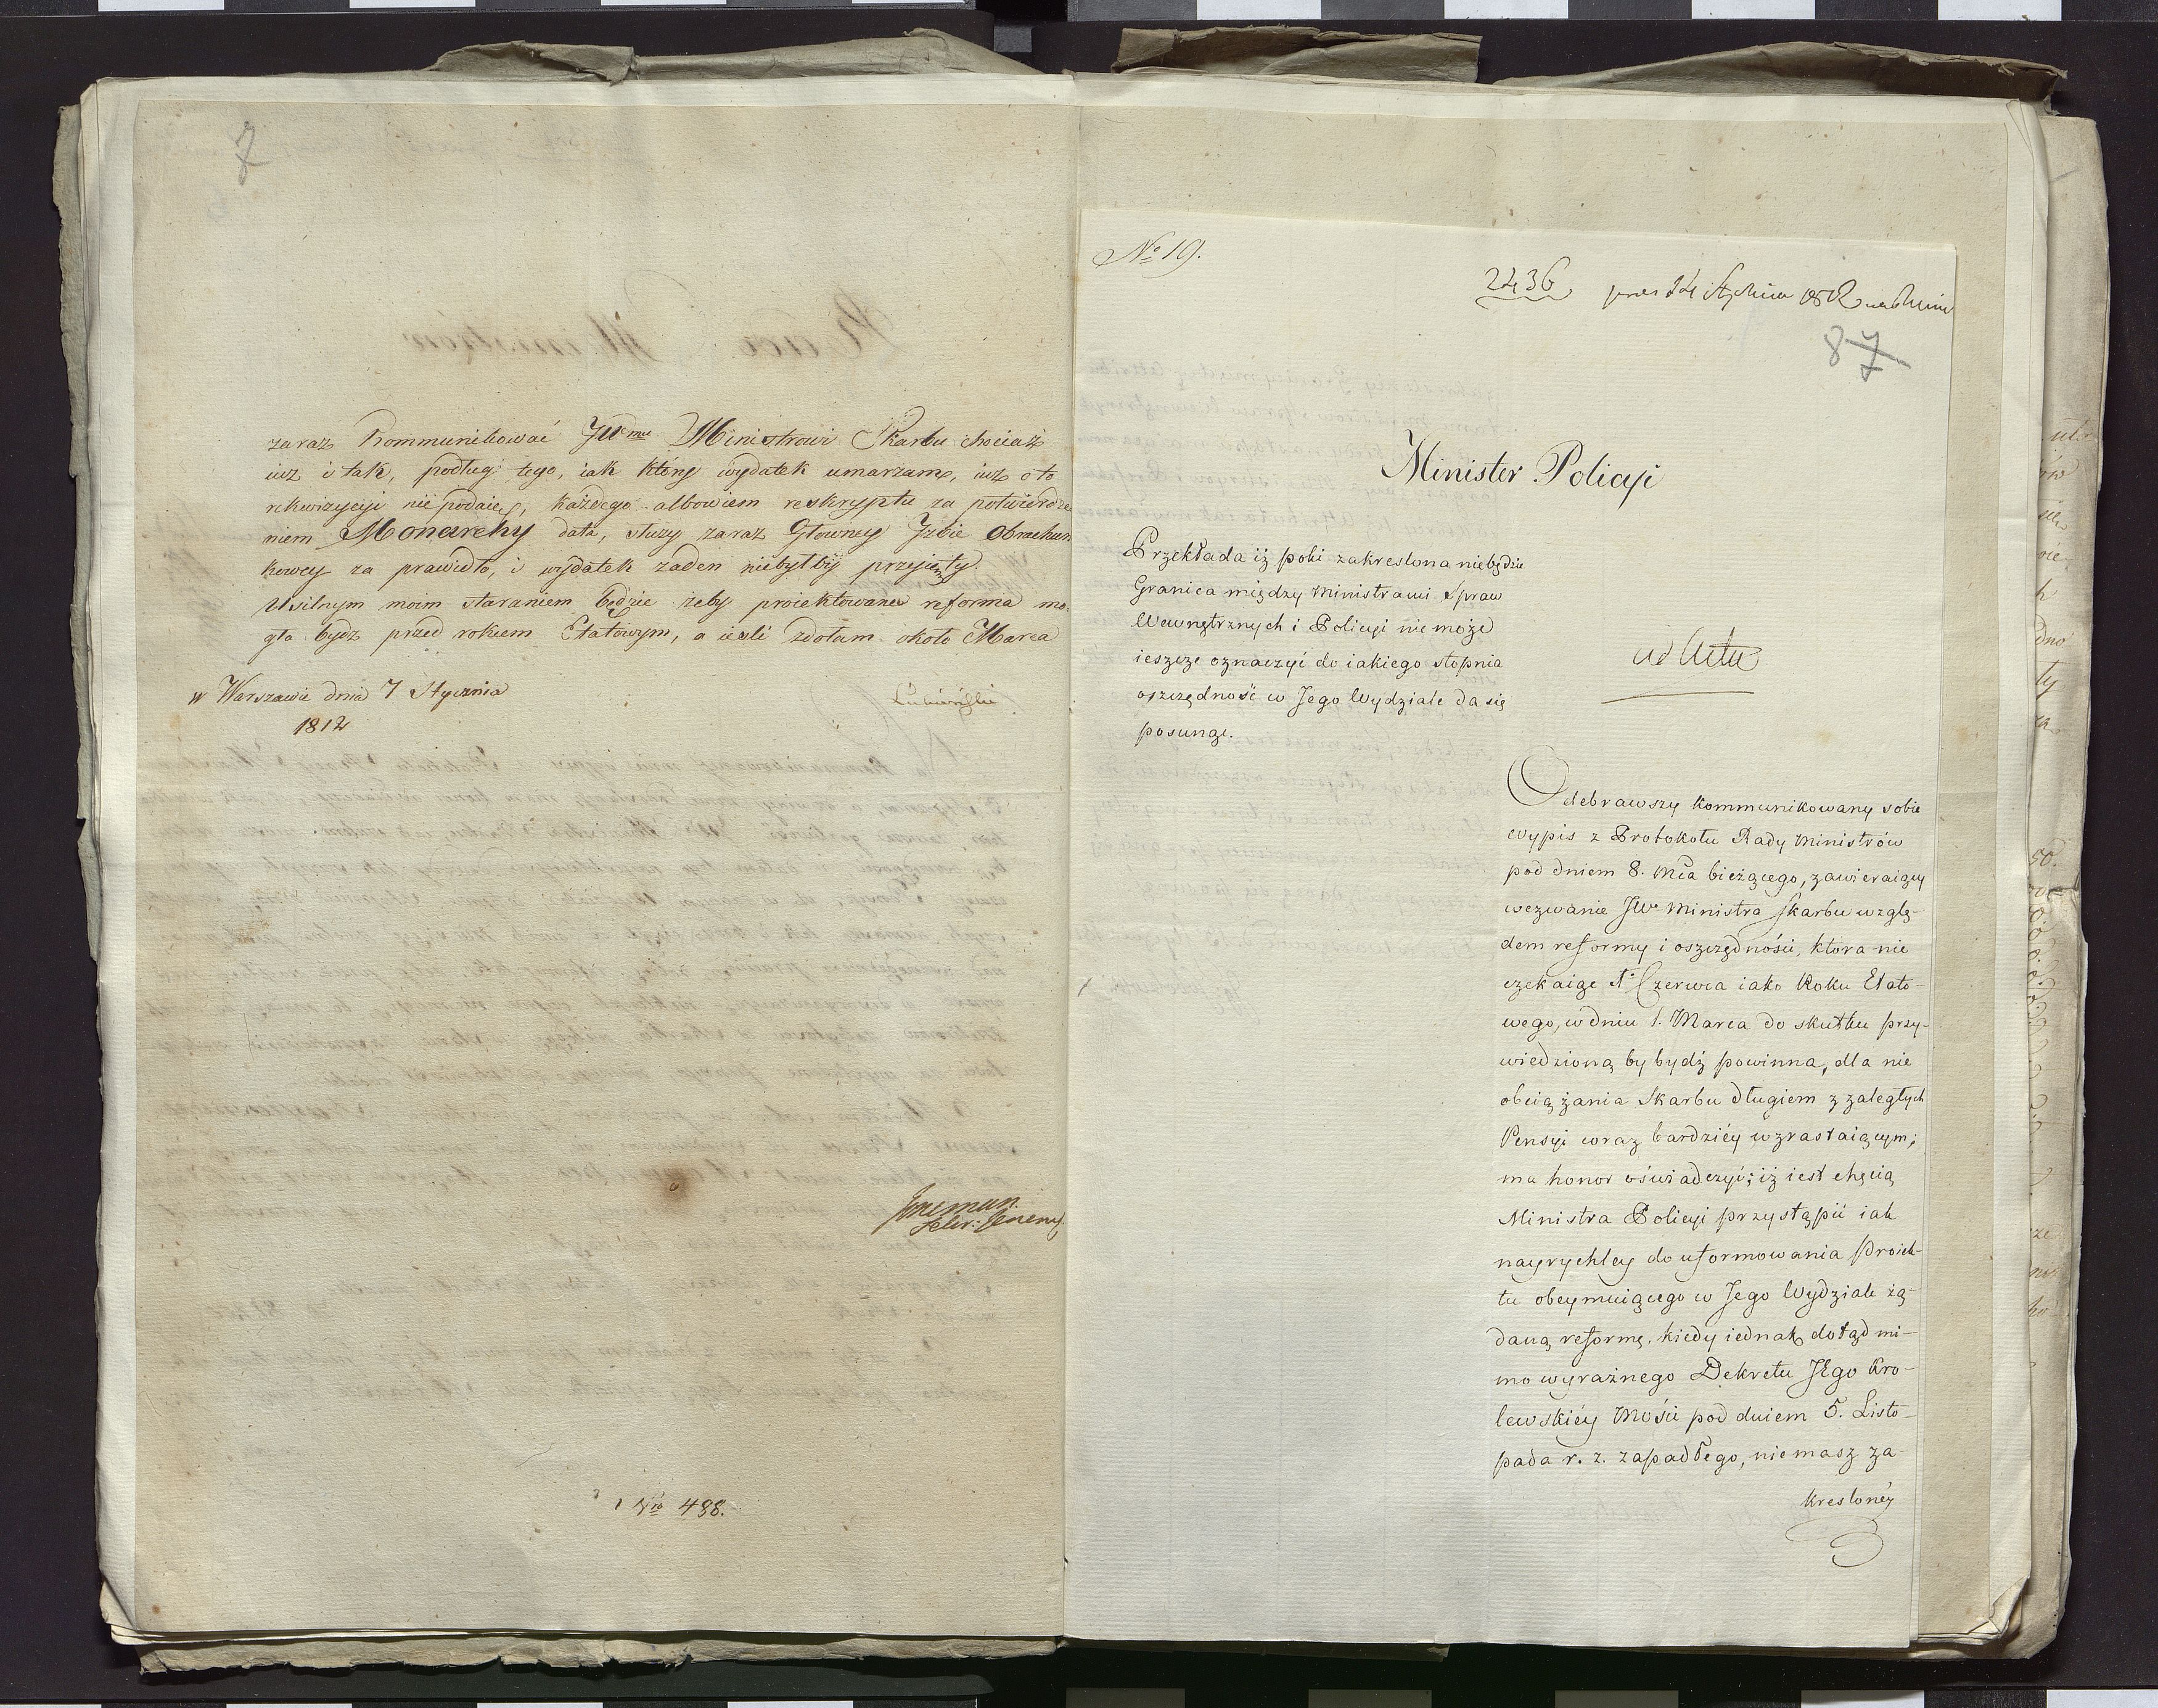 7
zaraz Kommunikować JWmu Ministrowi Skarbu chociaż
iuż i tak, podług tego, iak który wydatek umarzam, iuż o to
rekwizycyi nie podaię, każdego albowiem reskryptu za potwierdze
niem Monarchy data, służy zaraz Głowney Izbie Obrachun
kowey za prawidło, i wydatek żaden niebyłby przyięty.
Usilnym moim staraniem będzie żeby proiektowana reforma mo
gła bydz przed rokiem Etatowym, a ieśli zdołam około Marca
w Warszawie dnia 7 Stycznia
1812
Łubieński
Sekr: Jeneny.
Nro 488.
No 19.
2436 1812
87
Minister Policyi
Przekłada iż poki zakreslona niebędzie
Granica między Ministrami Spraw
Wewnętrznych i Policyi nie może
ieszcze oznaczyć do iakiego stopnia
oszczędność w Jego Wydziale da się
posunąć.
ad Acta
Odebrawszy kommunikowany sobie
wypis z Protokołu Rady Ministrów
pod dniem 8. Mca bieżącego, zawieraiący
wezwanie JW. Ministra Skarbu wzglę-
dem reformy i oszczędności, ktora nie
czekaiąc 1. Czerwca iako Roku Etato-
wego, w dniu 1. Marca do skutku przy-
wiedzioną by bydź powinna, dla nie
obciążania Skarbu długiem z zaległych
Pensyi coraz bardziéy wzrastaiącym;
ma honor oświadczyć; iż iest chęcią
Ministra Policyi przystąpić iak
nayrychley do uformowania Proiek-
tu obeymuiącego w Jego Wydziale żą-
daną reformę. kiedy iednak dotąd mi-
mo wyraźnego Dekretu JEgo Kro-
lewskiéy Mości pod dniem 5. Listo-
pada r. z. zapadłego, niemasz za-
kresloney